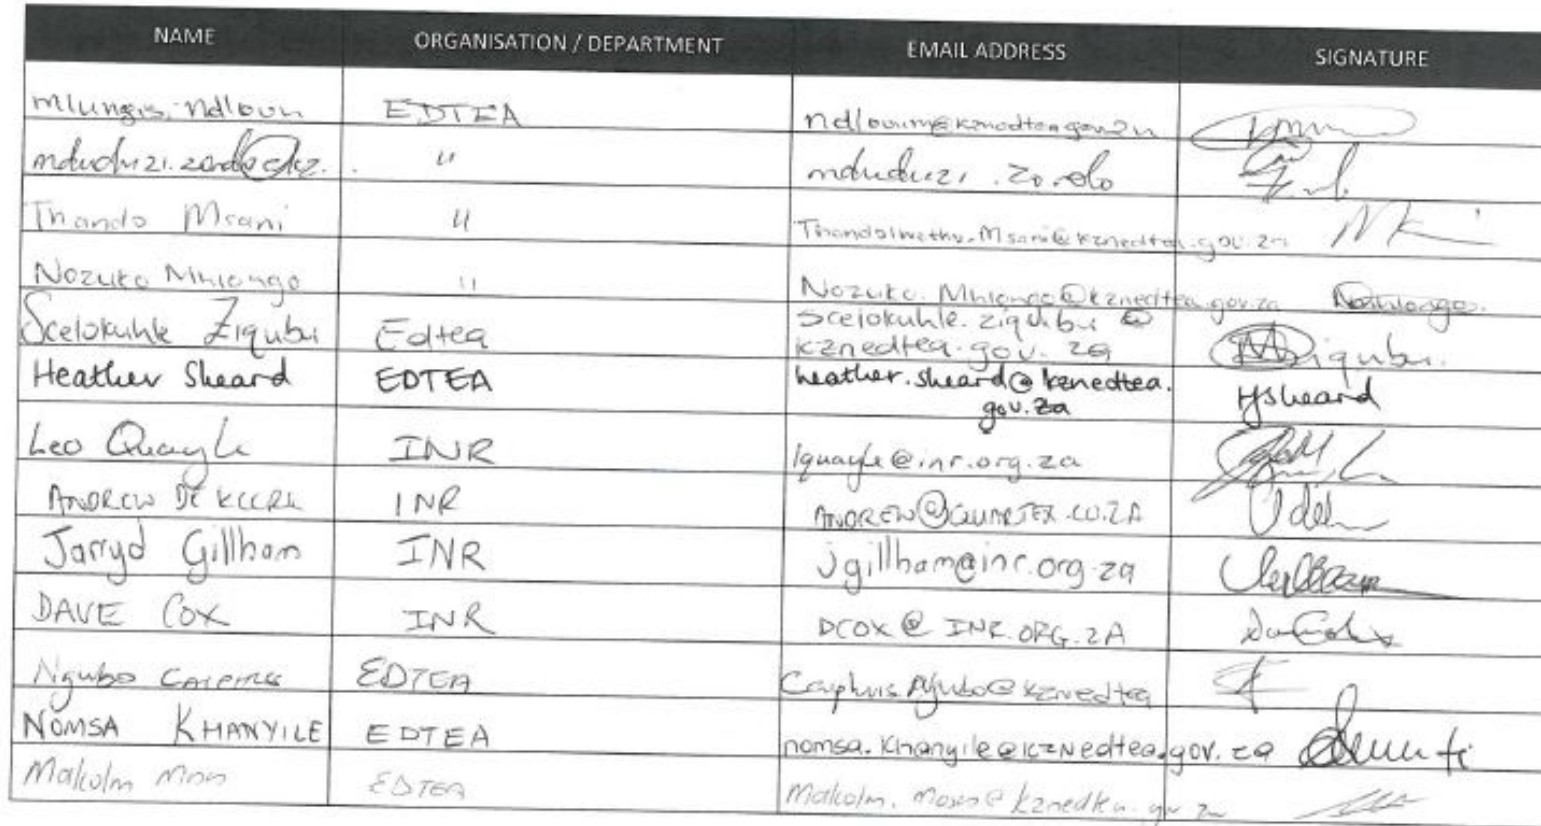 NAME ORGANISATION / DEPARTMENT EMAIL ADDRESS SIGNATURE
Mlungisi Ndlovu EDTEA ndlovum@kznedtea.gov.za
mduduzi.zondo@kz. . " mduduzi .zondo
Thando Msani " Thandolwethu.Msani@kznedtea.gov.za
Nozuko Mhlongo " Nozuko.Mhlongo@kznedtea.gov.za
Scelokuhle Ziqubu Edtea Scelokuhle.ziqubu@
kznedtea.gov.za
Heather Sheard EDTEA heather.sheard@kznedtea. HSheard
gov.za
Leo Quayle INR lquayle@inr.org.za
ANDREW DE KLERK INR ANDREW@QUARTEX.CO.ZA
Jarryd Gillham INR jgillham@inr.org.za
DAVE COX INR DCOX@INR.ORG.ZA
Ngubo EDTEA @kznedtea
NOMSA KHANYILE EDTEA nomsa.khanyile@kznedtea.gov.za
Malcolm EDTEA Malcolm.Moses@kznedtea.gov.za